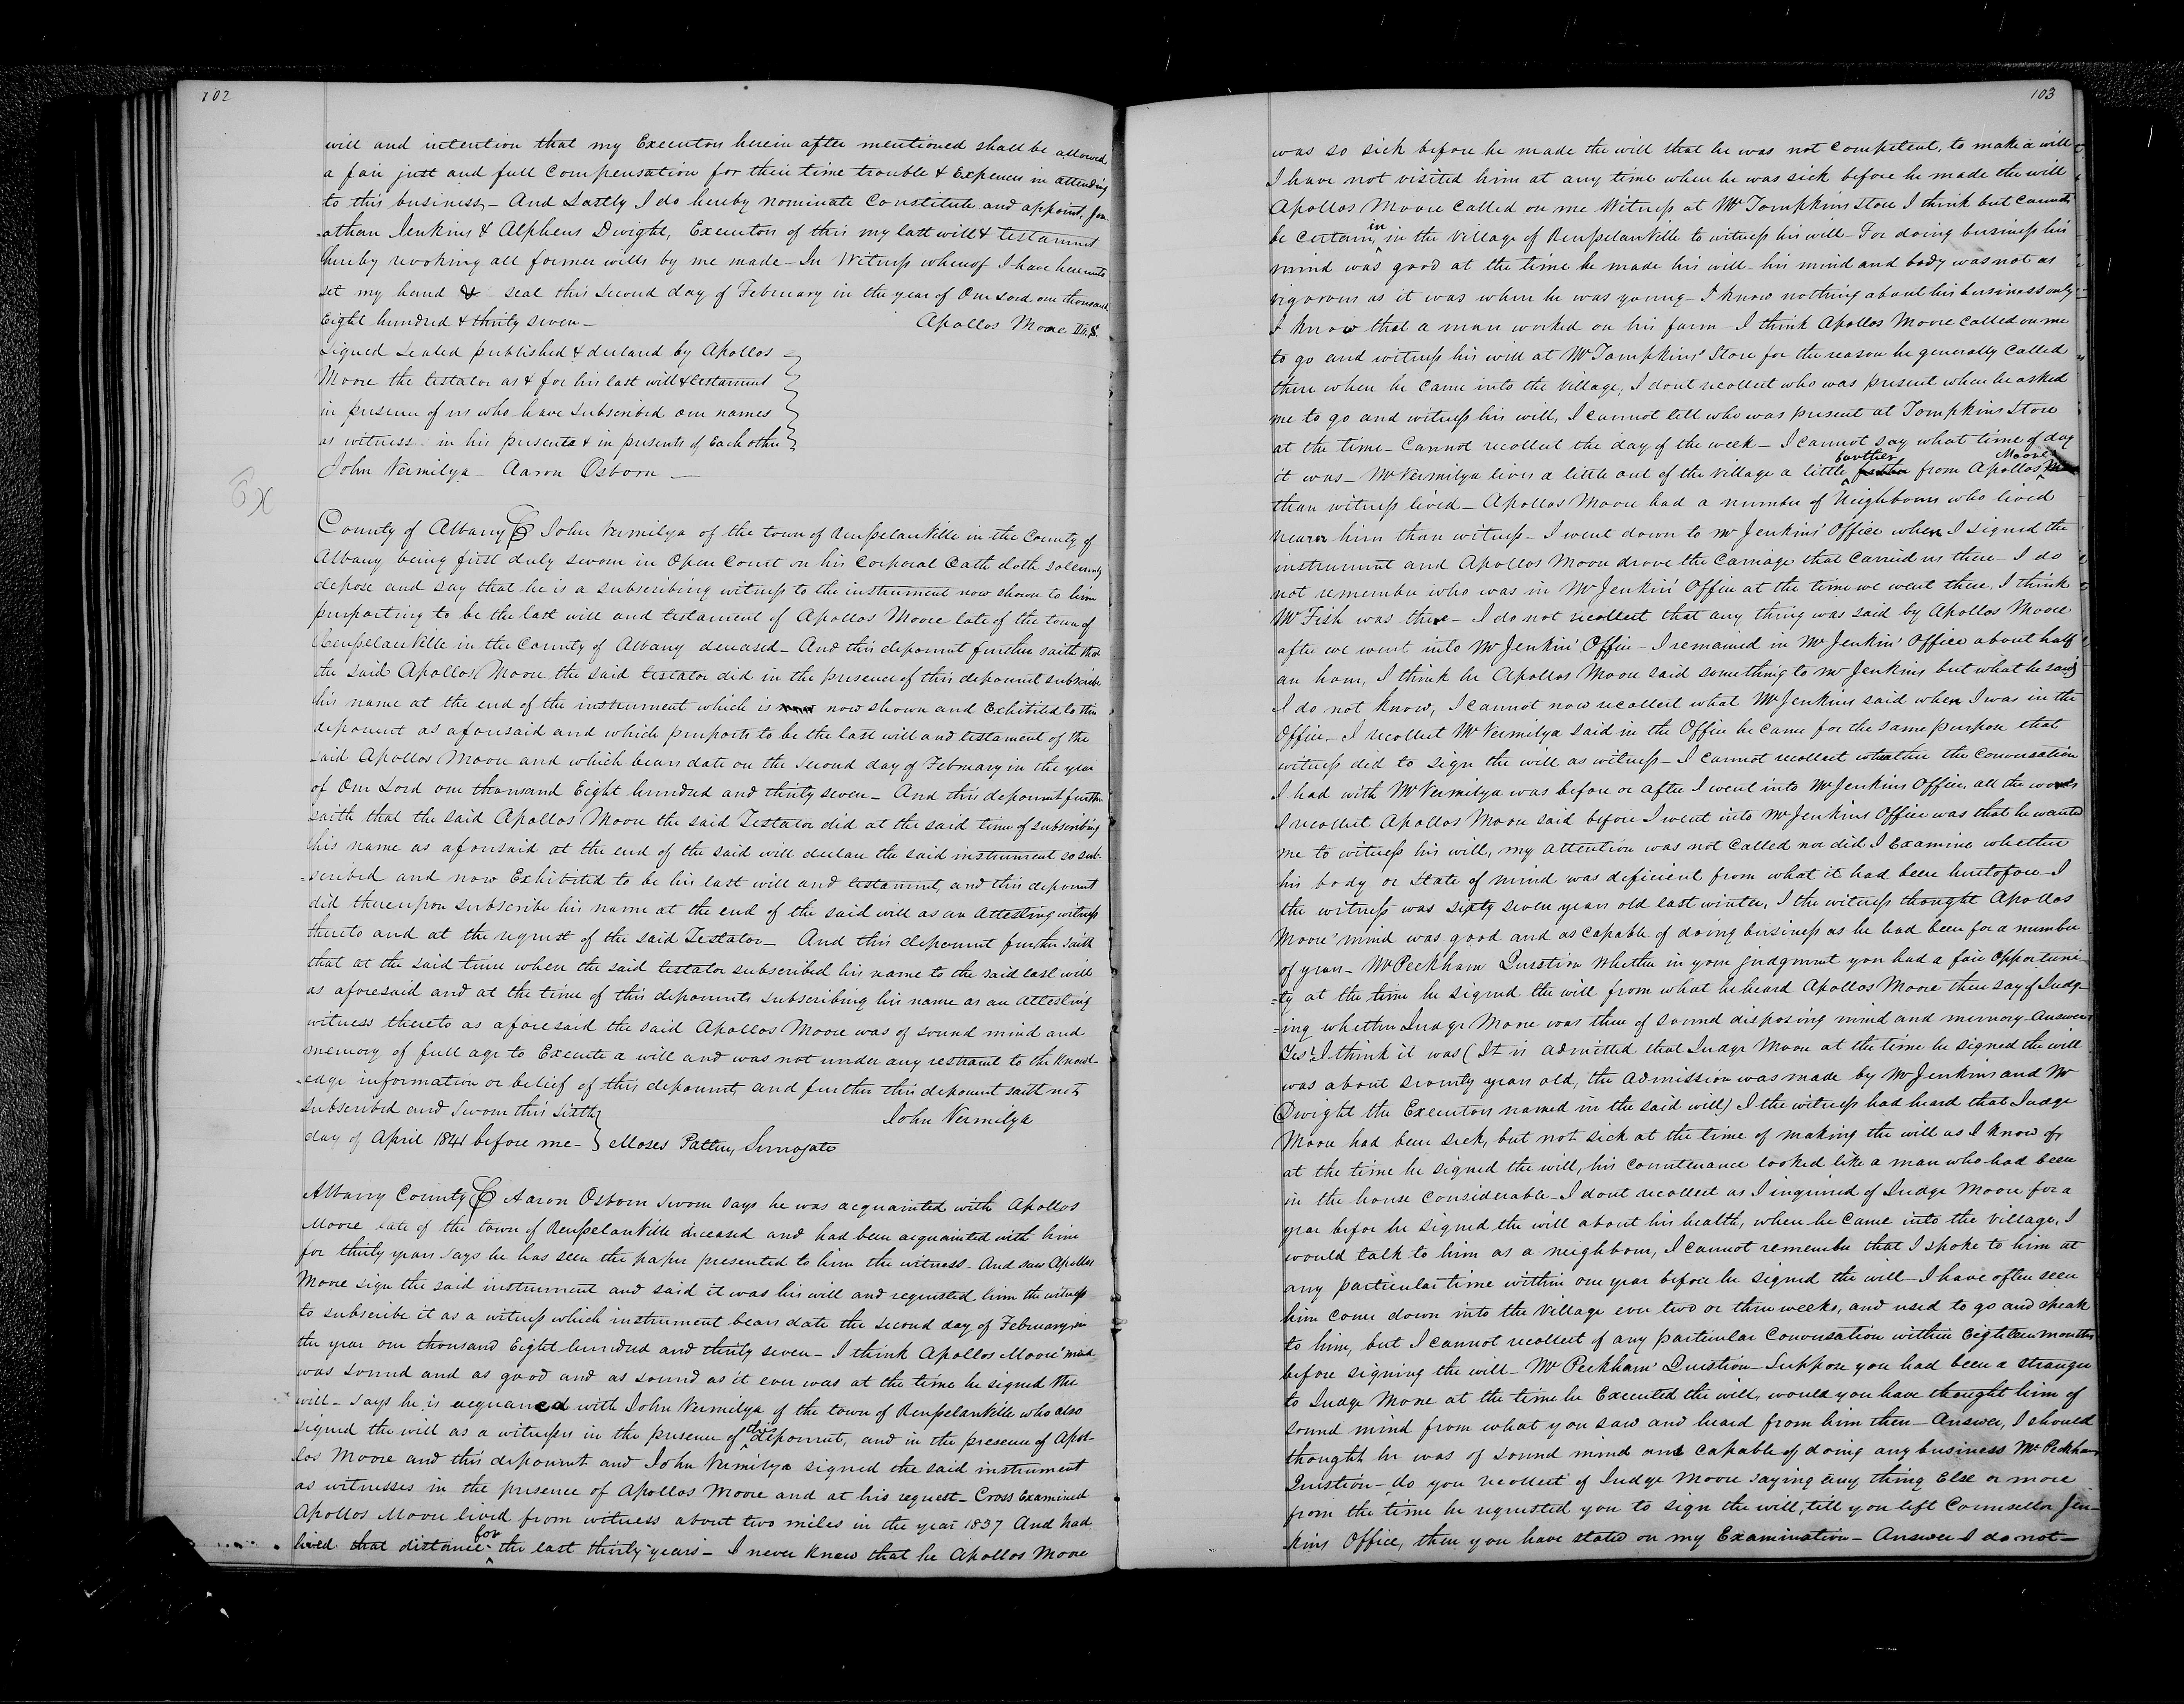 102
will and intention that my Executors herein after mentioned shall be allowed
a fair just and full Compensation for their time trouble & Expences in attending
to this business,- And Lastly I do hereby nominate Constitute and appoint, Jon
-athan Jenkins & Alpheus Dwight, Executors of this my last will & testament
hereby revoking all former wills by me made - In Witness whereof I have hereunto
set my hand & seal this second day of February in the year of Our Lord one thousand
Eight hundred & thirty seven - Apollos Moore
Signed Sealed published & declared by Apollos
Moore the testator as & for his last will & testament
in presence of us who have subscribed our names
as witness in his presents & in presents of Each other
John Vermilya - Aaron Osborn -
Ex
County of Albany John Vermilya of the town of Rensselaerville in the County of
Albany being first duly sworn in Open Court on his Corporal Oath doth solemnly
depose and say that he is a subscribing witness to the instrument now shown to him
purporting to be the last will and testament of Apollos Moore late of the town of
Rensselaerville in the County of Albany deceased - And this deponent further saith that
the said Apollos Moore the said testator did in the presence of this deponent subscribe
his name at the end of the instrument which is now shown and Exhibited to this
deponent as aforesaid and which purports to be the last will and testament of the
said Apollos Moore and which bears date on the second day of February in the year
of Our Lord one thousand Eight hundred and thirty seven - And this deponent further
saith that the said Apollos Moore the said Testator did at the said time of subscribing
his name as aforesaid at the end of the said will declare the said instrument so sub-
-scribed and now Exhibited to be his last will and testament, and this deponent
did thereupon subscribe his name at the end of the said will as an attesting witness
thereto and at the request of the said Testator - And this deponent further saith
that at the said time when the said testator subscribed his name to the said last will
as aforesaid and at the time of this deponents subscribing his name as an attesting
witness thereto as aforesaid the said Apollos Moore was of sound mind and
memory of full age to Execute a will and was not under any restraint to the knowl-
-edge information or belief of this deponent, and further this deponent saith not
subscribed and sworn this sixth John Vermilya
day of April 1841 before me - Moses Patten, Surrogate
Albany County Aaron Osborn sworn says he was acquainted with Apollos
Moore late of the town of Rensselaerville deceased and had been acquainted with him
for thirty years says he has seen the paper presented to him the witness - And saw Apollos
Moore sign the said instrument and said it was his will and requested him the witness
to subscribe it as a witness which instrument bears date the second day of February in
the year one thousand Eight hundred and thirty seven - I think Apollos Moore' mind
was sound and as good and as sound as it ever was at the time he signed the
will - says he is acquanced with John Vermilya of the town of Rensselaerville who also
signed the will as a witness in the presence of this deponent, and in the presence of Apol-
los Moore and this deponent and John Vermilya signed the said instrument
as witnesses in the presence of Apollos Moore and at his request - Cross Examined
Apollos Moore lived from witness about two miles in the year 1837 And had
lived that distance for the last thirty years - I never knew that he Apollos Moore
103
was so sick before he made the will that he was not competent, to make a will
I have not visited him at any time when he was sick before he made the will
Apollos Moore called on me Witness at Mr Tompkins Store I think but cannot
be certain, in the Village of Rensselaerville to witness his will - For doing business his
mind was good at the time he made his will - his mind and body was not as
vigorous as it was when he was young - I know nothing about his business only
I know that a man worked on his farm I think Apollos Moore called on me
to go and witness his will at Mr Tompkins' Store for the reason he generally called
there when he came into the Village, I dont recollect who was present when he asked
me to go and witness his will, I cannot tell who was present at Tompkins Store
at the time - Cannot recollect the day of the week - I cannot say what time of day
it was - Mr Vermilya lives a little out of the Village a little farther from Apollos Moore
than witness lived - Apollos Moore had a number of Neighbours who lived
nearer him than witness - I went down to Mr Jenkins' Office when I signed the
instrument and Apollos Moore drove the Carriage that Carried us there - I do
not remember who was in Mr Jenkin' Office at the time we went there, I think
Mr Fish was there - I do not recollect that any thing was said by Apollos Moore
after we went into Mr Jenkin' Office - I remained in Mr Jenkin' Office about half
an hour, I think he Apollos Moore said something to Mr Jenkins but what he said
I do not know, I cannot now recollect what Mr Jenkins said when I was in the
Office - I recollect Mr Vermilya said in the Office he came for the same purpose that
witness did to sign the will as witness - I cannot recollect whether the Conversation
I had with Mr Vermilya was before or after I went into Mr Jenkins Office, all the words
I recollect Apollos Moore said before I went into Mr Jenkins Office was that he wanted
me to witness his will, my attention was not called nor did I Examine whether
his body or state of mind was deficient from what it had been heretofore - I
the witness was sixty seven years old last winter, I the witness thought Apollos
Moore' mind was good and as capable of doing business as he had been for a number
of years - Mr Peckham Question Whether in your judgment you had a fair Opportuni-
-ty at the time he signed the will from what he heard Apollos Moore then say of Judg-
-ing whether Judge Moore was then of sound disposing mind and memory - Answer
Yes I think it was (It is admitted that Judge Moore at the time he signed the will
was about seventy years old, the admission was made by Mr Jenkins and Mr
Dwight the Executors named in the said will) I the witness had heard that Judge
Moore had been sick, but not sick at the time of making the will as I know of
at the time he signed the will, his countenance looked like a man who had been
in the house considerable - I dont recollect as I inquired of Judge Moore for a
year before he signed the will about his health, when he came into the village, I
would talk to him as a neighbour, I cannot remember that I spoke to him at
any particular time within one year before he signed the will - I have often seen
him come down into the Village ever two or three weeks, and used to go and speak
to him, but I cannot recollect of any particular Conversation within Eighteen months
before signing the will - Mr Peckham' Question - Suppose you had been a stranger
to Judge Moore at the time he Executed the will, would you have thought him of
sound mind from what you saw and heard from him then - Answer, I should
thought he was of sound mind and capable of doing any business Mr Peckham
Question - do you recollect of Judge Moore saying any thing Else or more
from the time he requested you to sign the will, till you left Counsellor Jen-
kins Office, then you have stated on my Examination - Answer I do not -